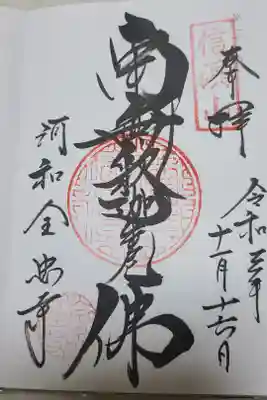 信濃山
奉拝
令和三年
十一月十六日
南無釈迦牟尼佛
河和全忠寺